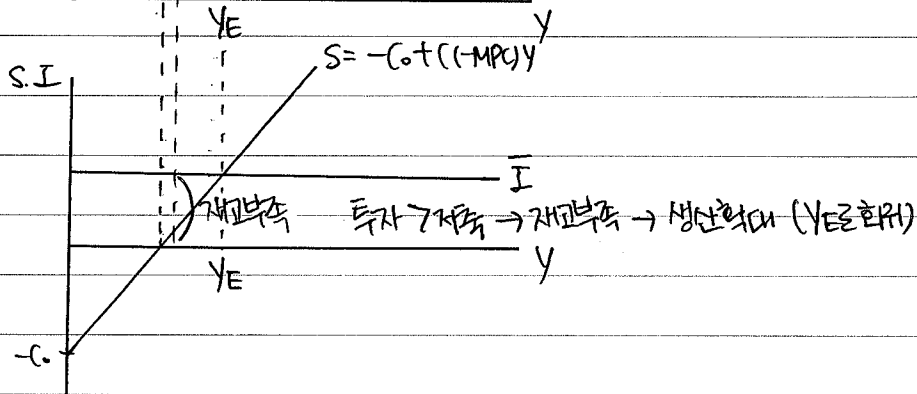 YE
Y
S = -C₀ + (1-MPC)Y
S.I
Ī
재고부족
투자 > 저축 → 재고부족 → 생산확대 (YE로 회귀)
YE
Y
-C₀